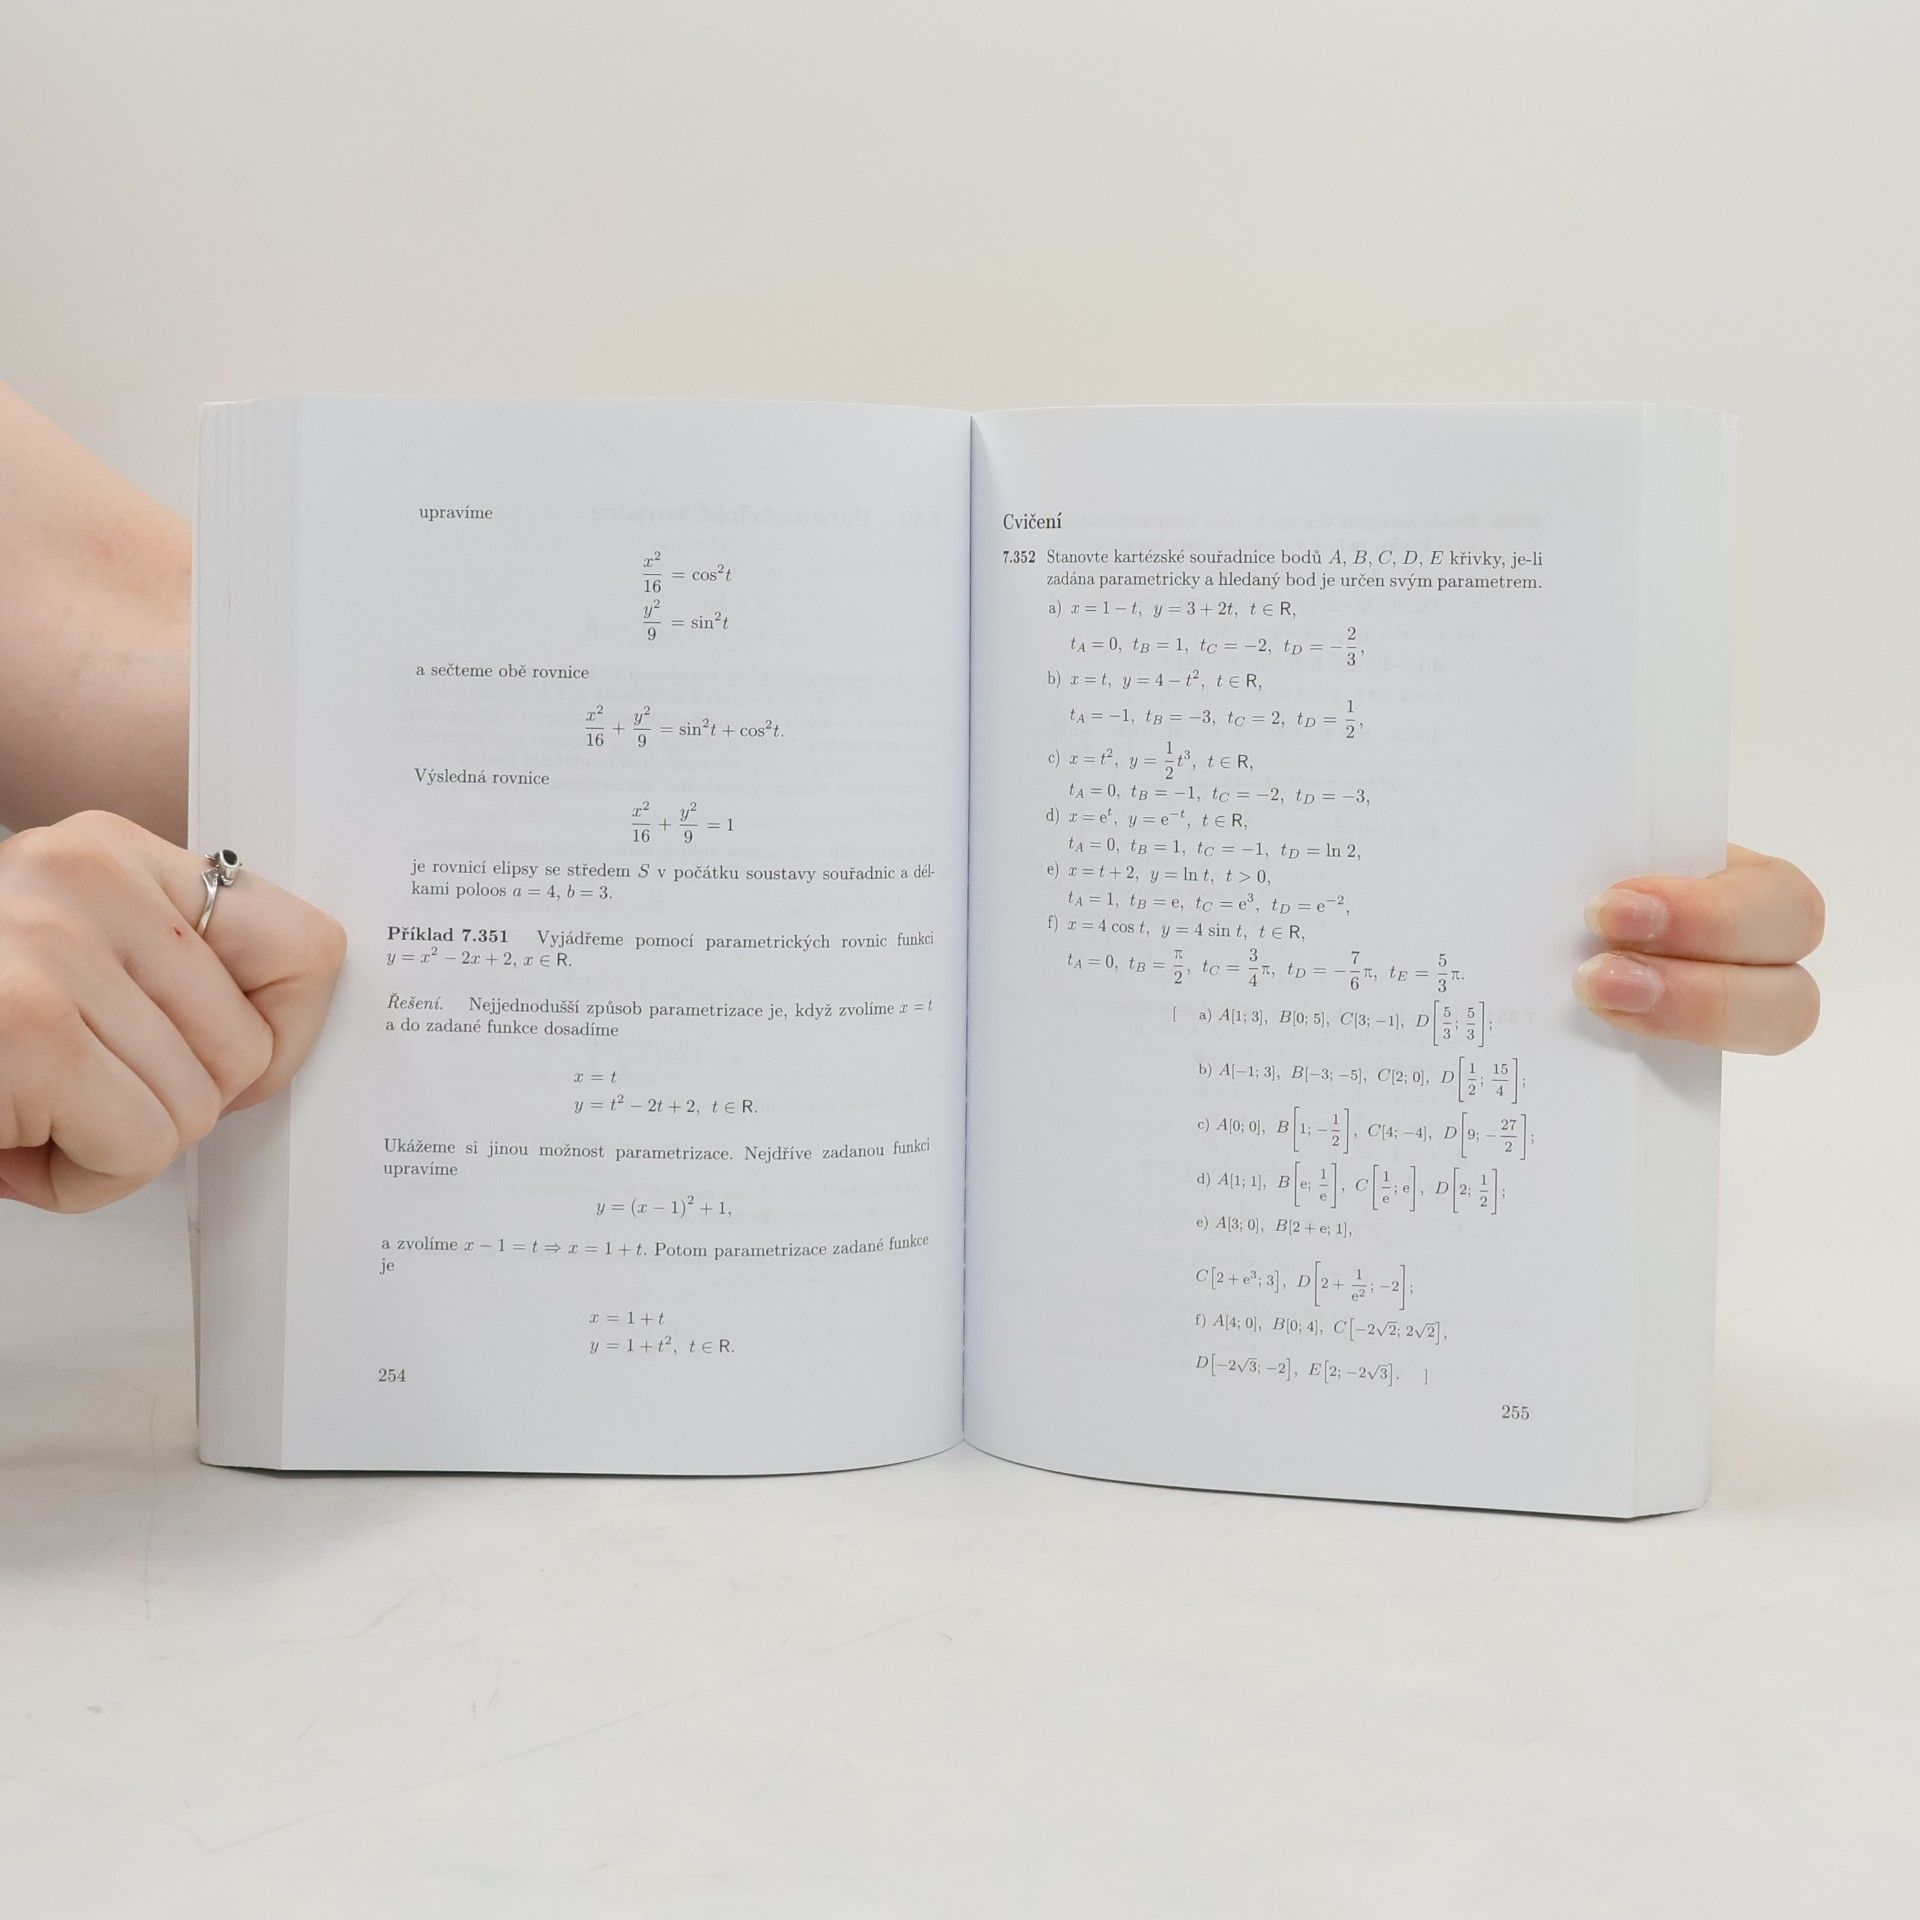 upravíme
x²/16 = cos²t
y²/9 = sin²t
a sečteme obě rovnice
x²/16 + y²/9 = sin²t + cos²t.
Výsledná rovnice
x²/16 + y²/9 = 1
je rovnicí elipsy se středem S v počátku soustavy souřadnic a dél-
kami poloos a = 4, b = 3.
Příklad 7.351 Vyjádřeme pomocí parametrických rovnic funkci
y = x² − 2x + 2, x ∈ R.
Řešení. Nejjednodušší způsob parametrizace je, když zvolíme x = t
a do zadané funkce dosadíme
x = t
y = t² − 2t + 2, t ∈ R.
Ukážeme si jinou možnost parametrizace. Nejdříve zadanou funkci
upravíme
y = (x − 1)² + 1,
a zvolíme x − 1 = t ⇒ x = 1 + t. Potom parametrizace zadané funkce
je
x = 1 + t
y = 1 + t², t ∈ R.
254
Cvičení
7.352 Stanovte kartézské souřadnice bodů A, B, C, D, E křivky, je-li
zadána parametricky a hledaný bod je určen svým parametrem.
a) x = 1 − t, y = 3 + 2t, t ∈ R,
t_A = 0, t_B = 1, t_C = −2, t_D = −2/3,
b) x = t, y = 4 − t², t ∈ R,
t_A = −1, t_B = −3, t_C = 2, t_D = 1/2,
c) x = t², y = 1/2 t³, t ∈ R,
t_A = 0, t_B = −1, t_C = −2, t_D = −3,
d) x = eᵗ, y = e⁻ᵗ, t ∈ R,
t_A = 0, t_B = 1, t_C = −1, t_D = ln 2,
e) x = t + 2, y = ln t, t > 0,
t_A = 1, t_B = e, t_C = e³, t_D = e⁻²,
f) x = 4 cos t, y = 4 sin t, t ∈ R,
t_A = 0, t_B = π/2, t_C = 3/4 π, t_D = −7/6 π, t_E = 5/3 π.
[ a) A[1; 3], B[0; 5], C[3; −1], D[5/3; 5/3];
b) A[−1; 3], B[−3; −5], C[2; 0], D[1/2; 15/4];
c) A[0; 0], B[1; −1/2], C[4; −4], D[9; −27/2];
d) A[1; 1], B[e; 1/e], C[1/e; e], D[2; 1/2];
e) A[3; 0], B[2 + e; 1],
C[2 + e³; 3], D[2 + 1/e²; −2];
f) A[4; 0], B[0; 4], C[−2√2; 2√2],
D[−2√3; −2], E[2; −2√3]. ]
255